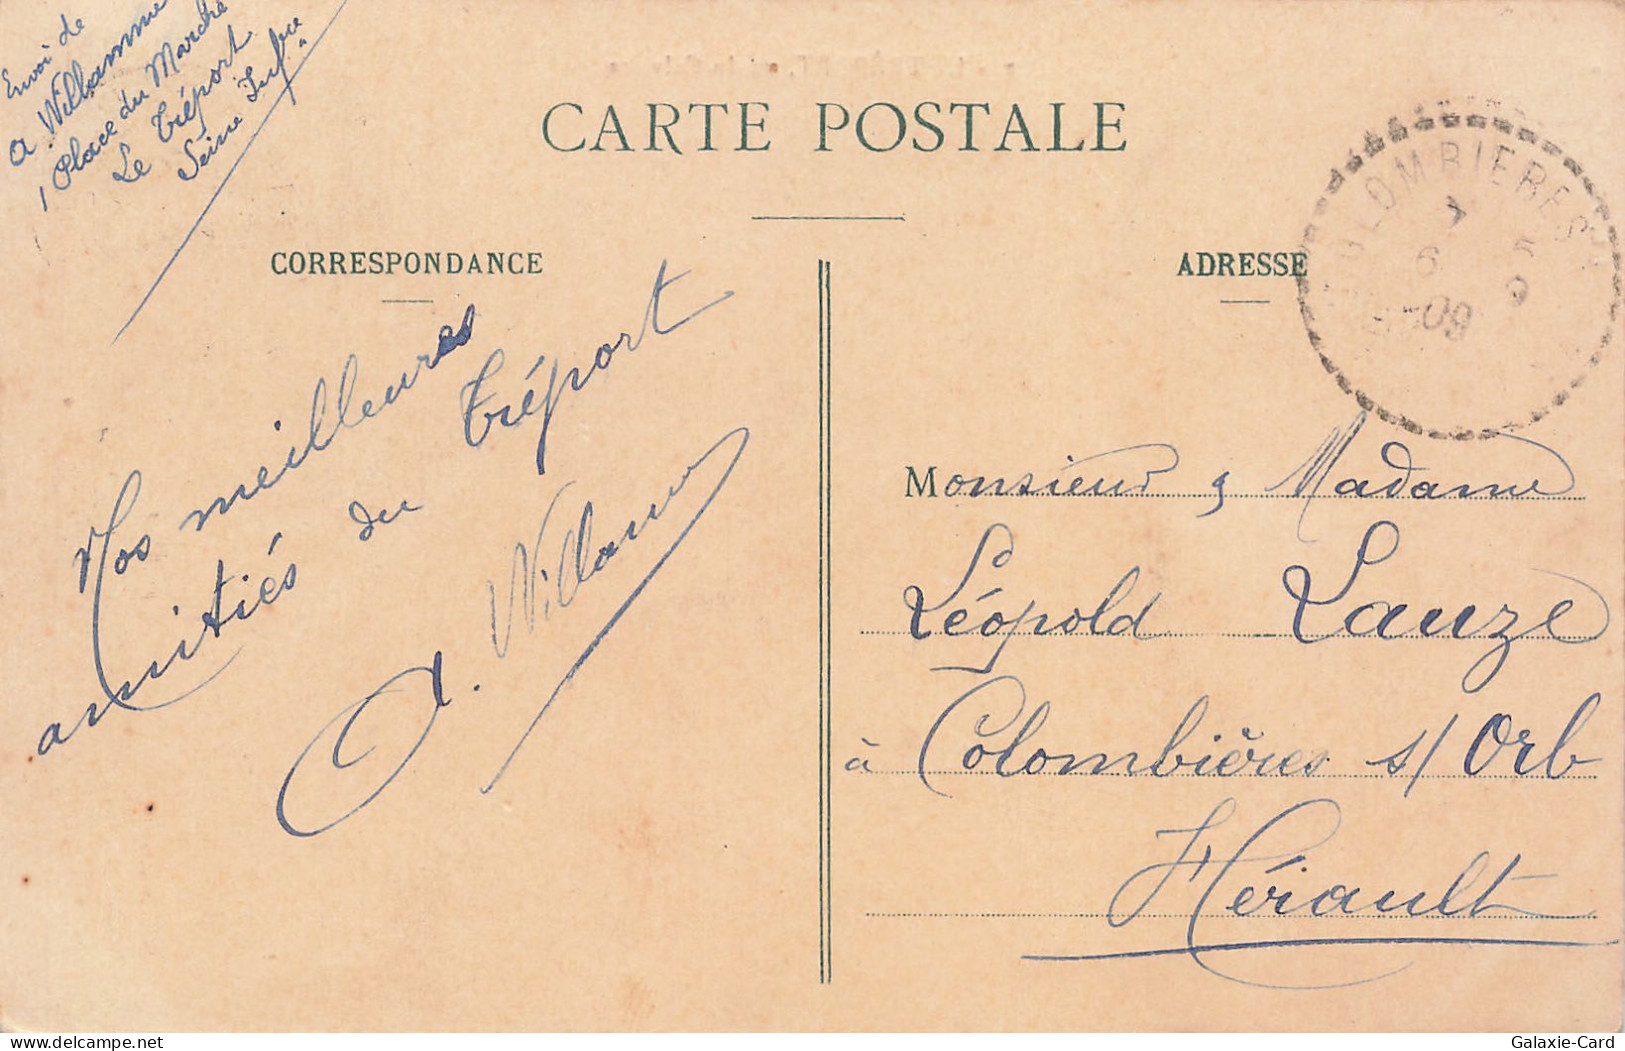 Envoi de
A. Willamme
1 Place du Marché
Le Tréport
Seine Infre
CARTE POSTALE
CORRESPONDANCE
ADRESSE
COLOMBIERES
7
6
09
Nos meilleures
amitiés du Tréport
A. Willamme
Monsieur & Madame
Léopold Lauze
à Colombières s/ Orb
Hérault
delcampe.net
Galaxie-Card